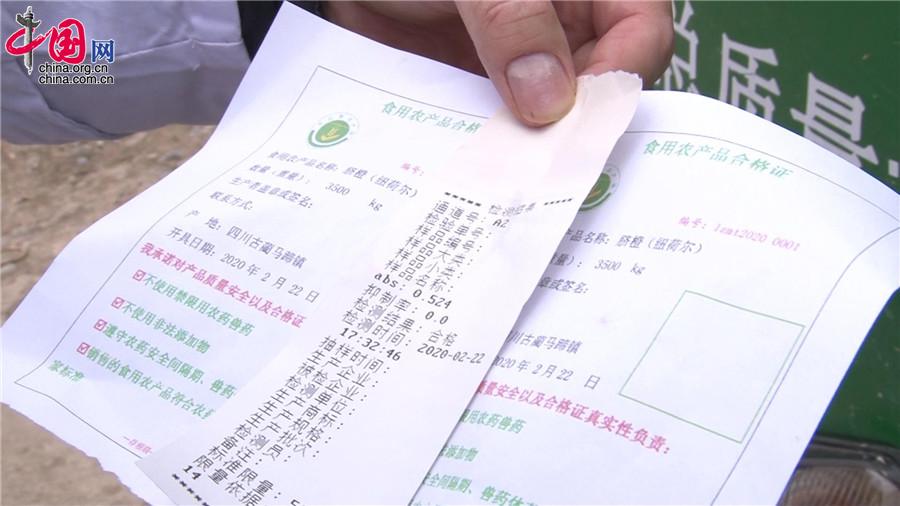 中国网
china.org.cn
china.com.cn
食用农产品合格
食用农产品名称：脐橙（纽荷尔）
数量（重量）：3500 kg
生产者盖章或签名：
联系方式：
产 地：四川古蔺马蹄镇
开具日期：2020 年 2 月 22 日
我承诺对产品质量安全以及合格证
不使用禁限用农药兽药
不使用非法添加物
遵守农药安全间隔期、兽药
销售的食用农产品符合农药
家标准
编号：
***** 检测结果 *****
通道号：A2
检验单号：
样品编号：
样品大类：
样品小类：
样品名称：
abs: 0.524
抑制率：0.0
检测结果：合格
检测时间：2020-02-22
17:32:46
抽样时间：
生产企业：
被检企业：
检测单位：
生产商标：
生产规格：
生产批次：
检测员：
备注：
标准限量：5
限量依据
14
食用农产品合格证
编号：lzmt2020 0001
产品名称：脐橙（纽荷尔）
量）：3500 kg
章或签名：
川古蔺马蹄镇
2020 年 2 月 22 日
质量安全以及合格证真实性负责：
用农药兽药
添加物
安全间隔期、兽药休